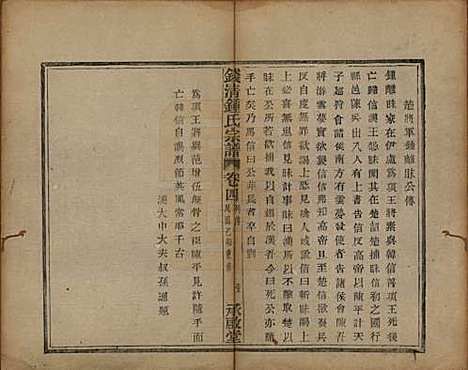 楚將軍鍾離昧公傳
鍾離昧家在伊廬爲項王將素與韓信善項王死後
亡歸信漢王怨昧聞其在楚詔楚捕昧信初之國行
縣邑陳兵出入人有上書告信反高帝以陳平計天
子巡狩會諸侯南方有雲夢發使告諸侯會陳吾
將游雲夢實欲襲信信弗知高帝且至楚信欲發兵
反自度無罪欲謁上恐見禽人或說信曰斬昧謁上
上必喜無患信見昧計事昧曰漢所以不擊取楚以
昧在公所若欲捕我以自媚於漢吾今日死公亦隨
手亡矣乃罵信曰公非長者卒自剄
錢清鍾氏宗譜 卷四
承啟堂
爲項王將與范增伍綆骨之臣陳平見許隨手而
亡韓信而後節英風常昭千古
漢大中大夫叔孫通題